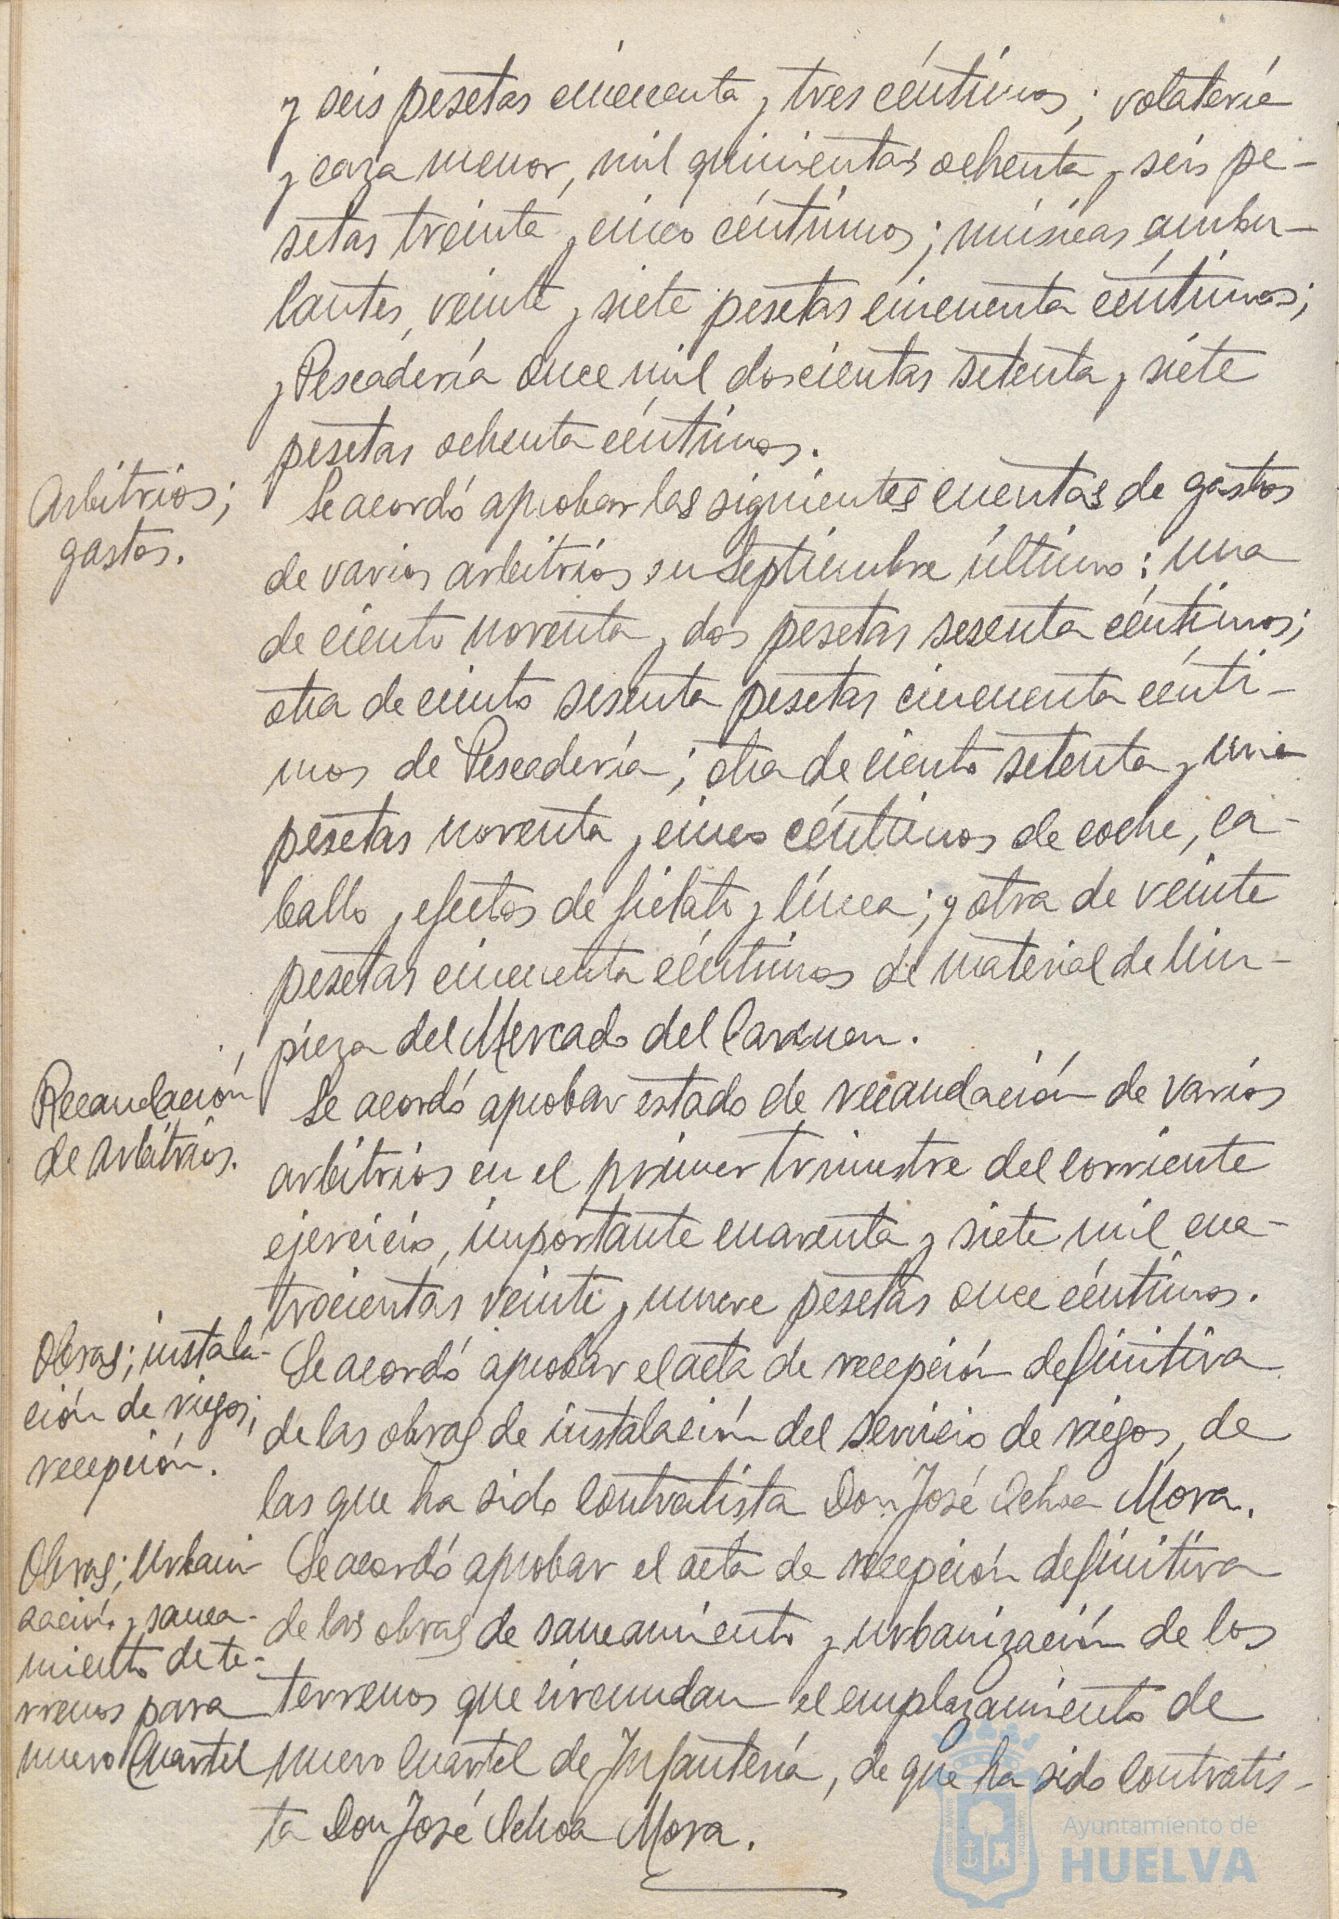 y seis pesetas cincuenta y tres céntimos; volatería
y caza menor, mil quinientas ochenta y seis pe-
setas treinta y cinco céntimos; músicas ambu-
lantes, veinte y siete pesetas cincuenta céntimos;
y Pescadería once mil doscientas setenta y siete
pesetas ochenta céntimos.
Arbitrios;
gastos.
Se acordó aprobar las siguientes cuentas de gastos
de varios arbitrios en Septiembre último: una
de ciento noventa y dos pesetas sesenta céntimos;
otra de ciento sesenta pesetas cincuenta cénti-
mos de Pescadería; otra de ciento setenta y una
pesetas noventa y cinco céntimos de coche, ca-
ballo y efectos de fielato y línea; y otra de veinte
pesetas cincuenta céntimos de material de lim-
pieza del Mercado del Carmen.
Recaudación
de arbitrios.
Se acordó aprobar estado de recaudación de varios
arbitrios en el primer trimestre del corriente
ejercicio, importante cuarenta y siete mil cua-
trocientas veinte y nueve pesetas once céntimos.
Obras; instala-
ción de riegos;
recepción.
Se acordó aprobar el acta de recepción definitiva
de las obras de instalación del servicio de riegos, de
las que ha sido contratista Don José Ochoa Mora.
Obras; Urbani
zación y sanea-
miento de te-
rrenos para
nuevo Cuartel
Se acordó aprobar el acta de recepción definitiva
de las obras de saneamiento y urbanización de los
terrenos que circundan el emplazamiento de
nuevo Cuartel de Infantería, de que ha sido contratis-
ta Don José Ochoa Mora.
Ayuntamiento de
HUELVA